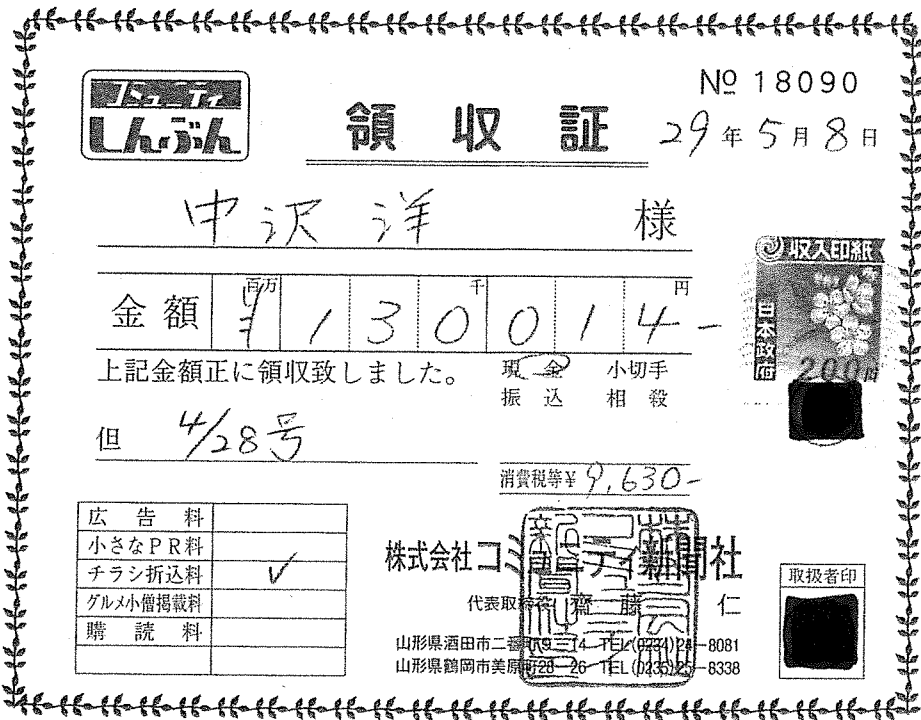 コミュニティ
しんぶん
領収証
№ 18090
29年5月8日
中沢 洋 様
金額 百万 千 円
¥130014-
上記金額正に領収致しました。
現金 小切手
振込 相殺
但 4/28号
消費税等¥ 9,630-
収入印紙
日本政府
200円
広告料
小さなPR料
チラシ折込料 ✓
グルメ小僧掲載料
購読料
株式会社コミュニティ新聞社
代表取締役 齋藤 仁
山形県酒田市二番町9-14 TEL(0234)24-8081
山形県鶴岡市美原町28-26 TEL(0235)25-8338
取扱者印